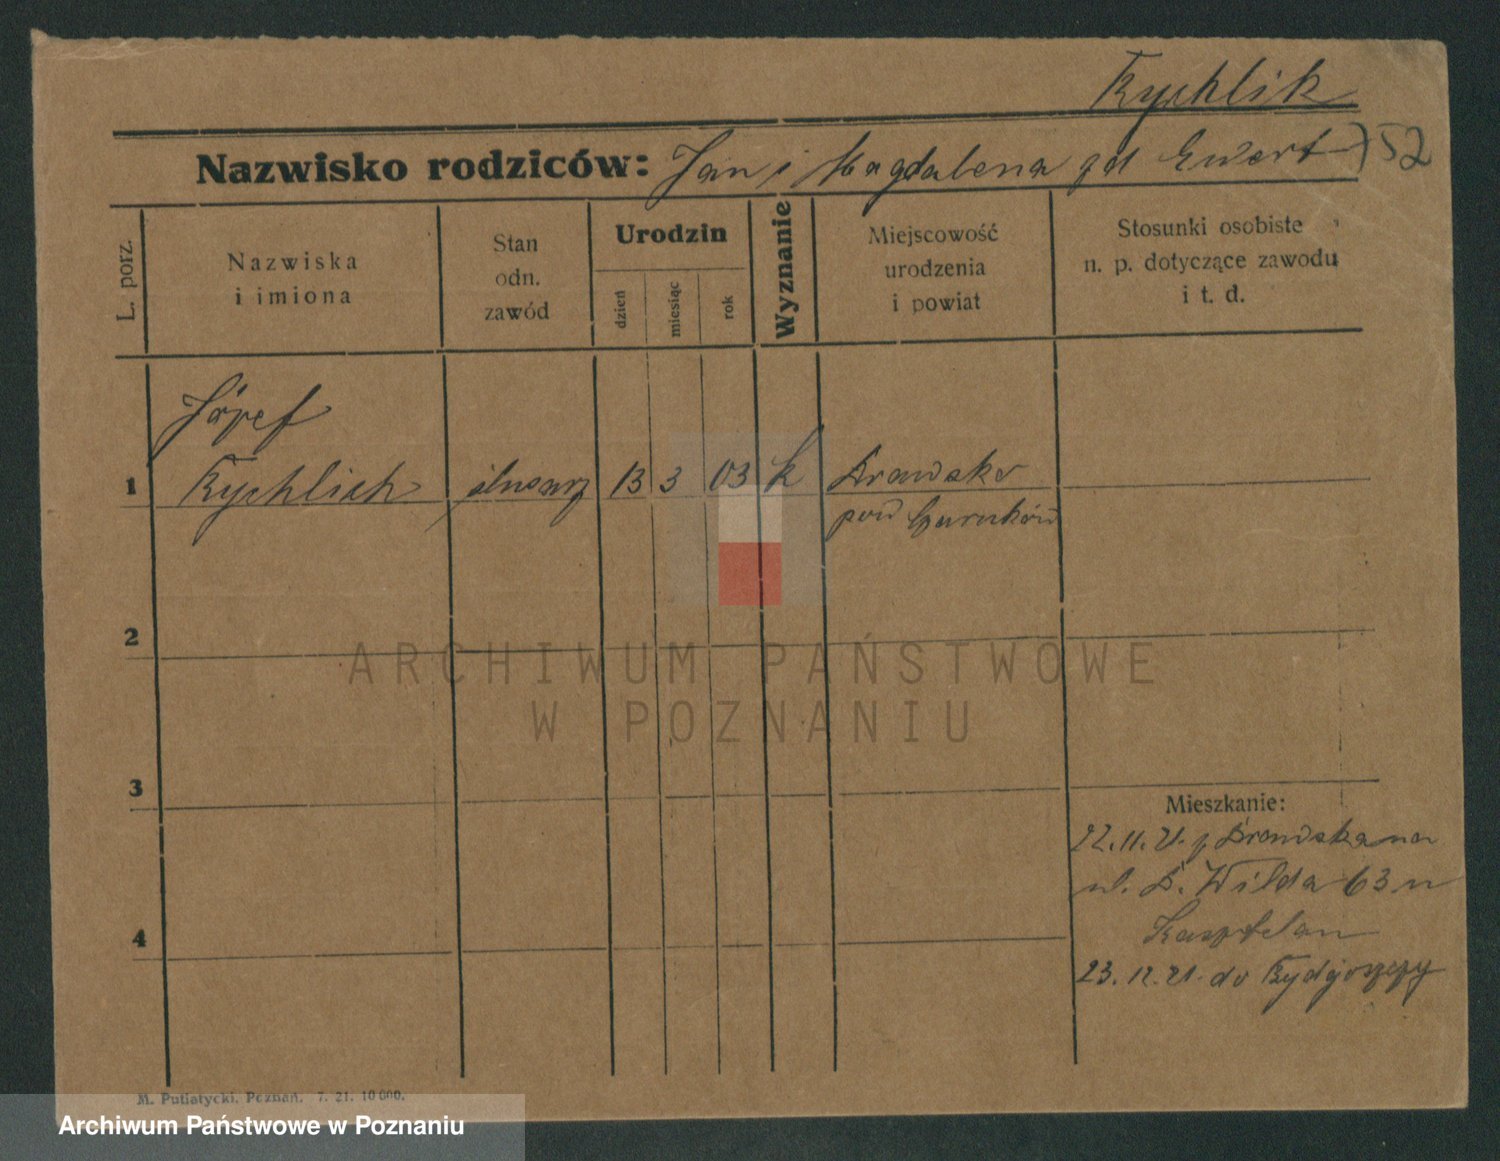 Rychlik
Nazwisko rodziców: Jan i Magdalena zd Ewert
752
L. porz.
Nazwiska
i imiona
Stan
odn.
zawód
Urodzin
dzień
miesiąc
rok
Wyznanie
Miejscowość
urodzenia
i powiat
Stosunki osobiste
n. p. dotyczące zawodu
i t. d.
Józef
1 Rychlich ślusarz 13 3 03 k Drawsko
pow Czarnków
2
3
4
Mieszkanie:
22.11.21. z Drawska na
ul. D. Wilda 63 u
Kasztelan
23.12.21. do Bydgoszczy
M. Putiatycki, Poznań. 7. 21. 10 000.
ARCHIWUM PAŃSTWOWE
W POZNANIU
Archiwum Państwowe w Poznaniu